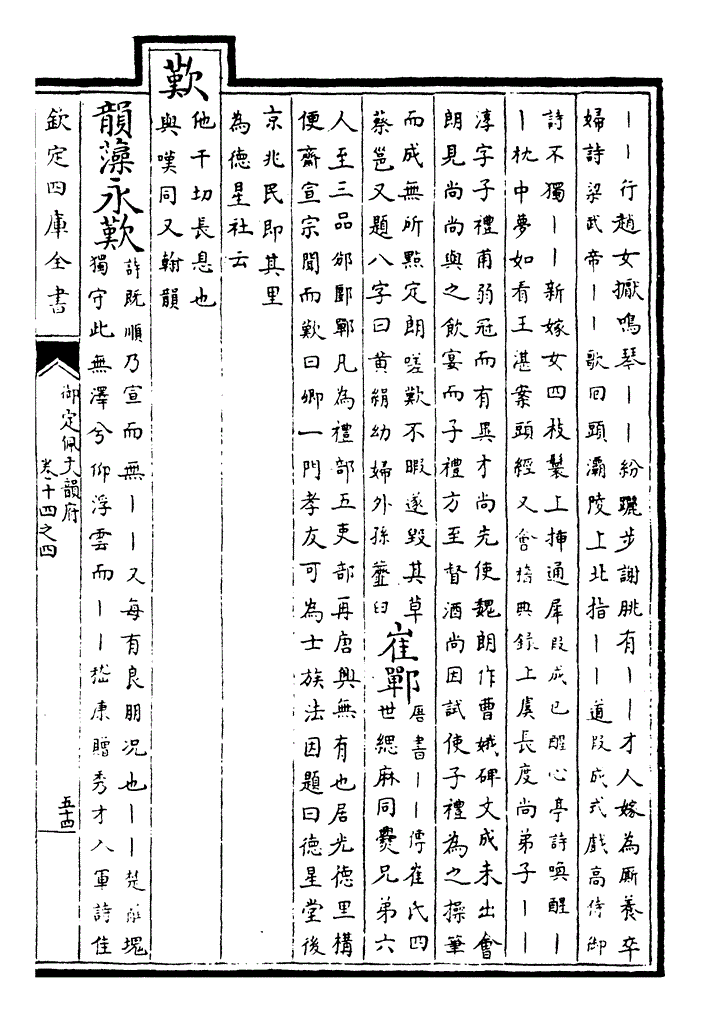 ｜｜行趙女擫鳴琴｜｜紛躧步謝朓有｜｜才人嫁為厮養卒
婦詩梁武帝｜｜歌回頭灞陵上北指｜｜道段成式戲高侍御
詩不獨｜｜新嫁女四枝鬟上揷通犀段成已醒心亭詩喚醒｜
｜枕中夢如看王湛案頭經又會稽典錄上虞長度尚弟子｜｜
淳字子禮甫弱冠而有異才尚先使魏朗作曹娥碑文成未出會
朗見尚尚與之飲宴而子禮方至督酒尚因試使子禮為之操筆
而成無所點定朗嗟歎不暇遂毀其草
蔡邕又題八字曰黃絹幼婦外孫虀臼
崔鄲
唐書｜｜傳崔氏四
世緦麻同爨兄弟六
人至三品邠郾鄲凡為禮部五吏部再唐興無有也居光德里構
便齋宣宗聞而歎曰卿一門孝友可為士族法因題曰德星堂後
京兆民即其里
為德星社云
歎
他干切長息也
與嘆同又翰韻
韻藻永歎
許既順乃宣而無｜｜又每有良朋况也｜｜楚辭塊
獨守此無澤兮仰浮雲而｜｜嵇康贈秀才入軍詩佳
欽定四庫全書
御定佩文韻府
卷十四之四
五十四